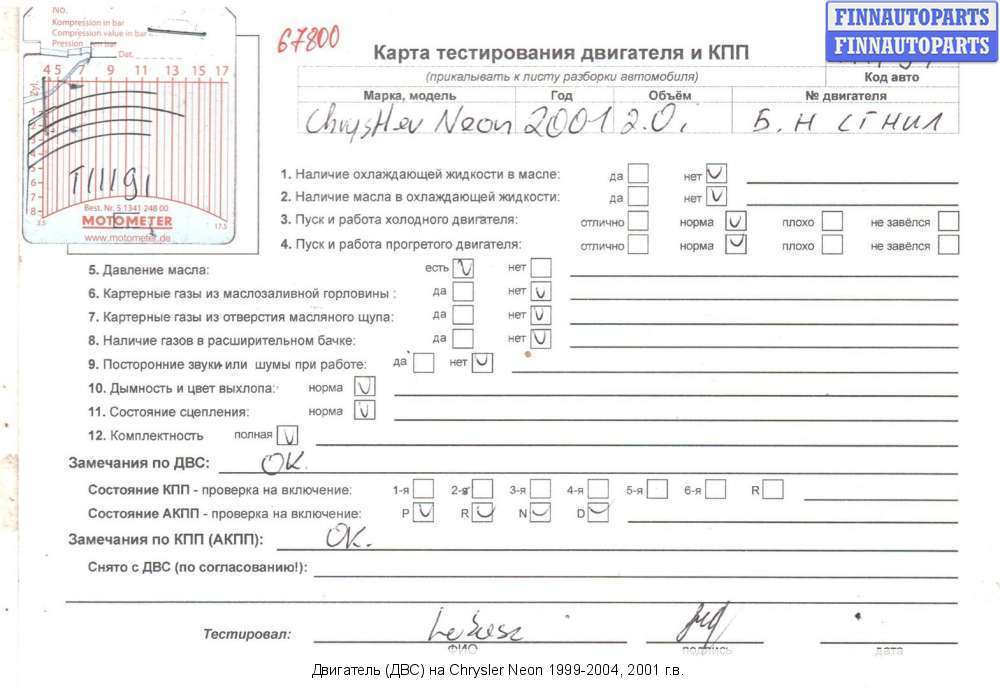 No.
Kompression in bar
Compression value in bar
Pression bar
Dat.
67800
FINNAUTOPARTS
FINNAUTOPARTS
Карта тестирования двигателя и КПП
(прикалывать к листу разборки автомобиля)
Код авто
Марка, модель Год Объём № двигателя
Chrysller Neon 2001 2.0i Б.Н СГНИЛ
Zyl.
4 5 7 9 11 13 15 17
1
2
3
4
5
6
7
8
T11191
Best. Nr. 5 1341 248 00
MOTOMETER
3.5 17.5
www.motometer.de
1. Наличие охлаждающей жидкости в масле: да нет V
2. Наличие масла в охлаждающей жидкости: да нет V
3. Пуск и работа холодного двигателя: отлично норма V плохо не завёлся
4. Пуск и работа прогретого двигателя: отлично норма V плохо не завёлся
5. Давление масла: есть V нет
6. Картерные газы из маслозаливной горловины : да нет V
7. Картерные газы из отверстия масляного щупа: да нет V
8. Наличие газов в расширительном бачке: да нет V
9. Посторонние звуки или шумы при работе: да нет V
10. Дымность и цвет выхлопа: норма V
11. Состояние сцепления: норма V
12. Комплектность полная V
Замечания по ДВС: OK.
Состояние КПП - проверка на включение: 1-я 2-я 3-я 4-я 5-я 6-я R
Состояние АКПП - проверка на включение: P V R V N V D V
Замечания по КПП (АКПП): OK.
Снято с ДВС (по согласованию!):
Тестировал:
ФИО подпись дата
Двигатель (ДВС) на Chrysler Neon 1999-2004, 2001 г.в.